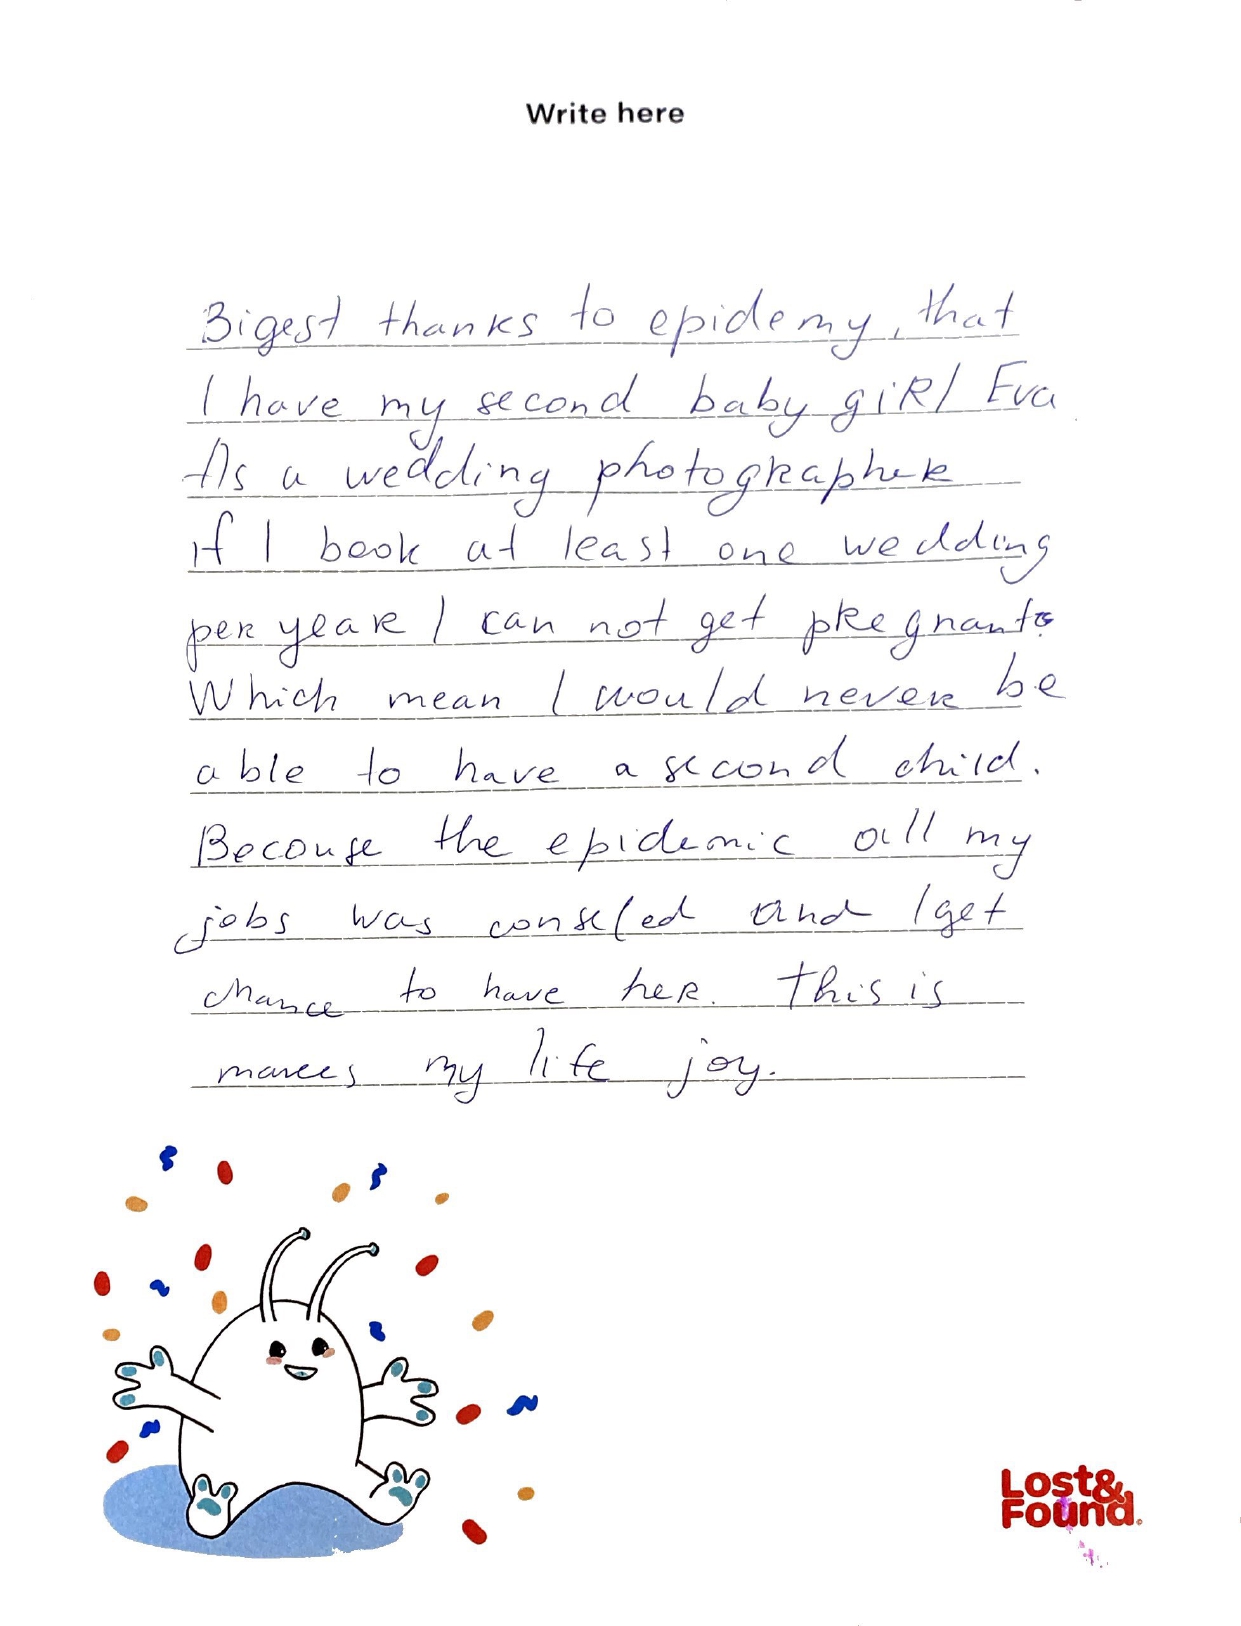 Write here
Bigest thanks to epidemy, that
I have my second baby girl Eva
As a wedding photographer
if I book at least one wedding
per year I can not get pregnant.
Which mean I would never be
able to have a second child.
Becouse the epidemic all my
jobs was conseled and I get
chance to have her. This is
my life joy.
Lost&
Found.